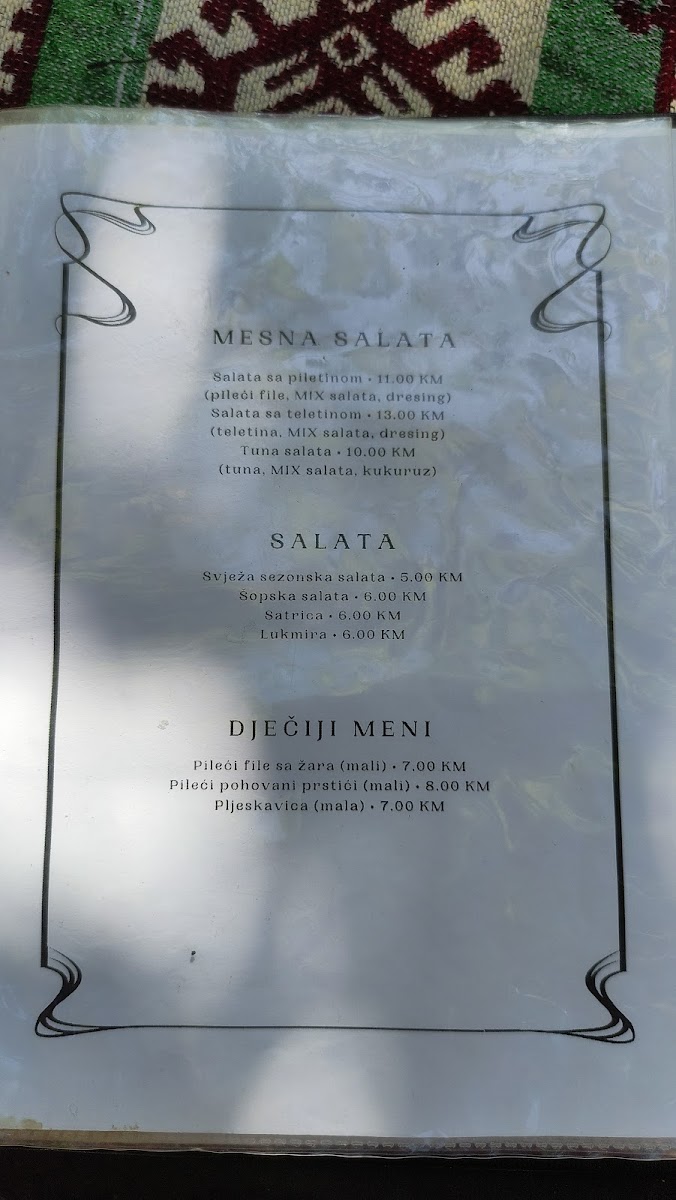 MESNA SALATA
Salata sa piletinom • 11.00 KM
(pileći file, MIX salata, dresing)
Salata sa teletinom • 13.00 KM
(teletina, MIX salata, dresing)
Tuna salata • 10.00 KM
(tuna, MIX salata, kukuruz)
SALATA
Svježa sezonska salata • 5.00 KM
Šopska salata • 6.00 KM
Satrica • 6.00 KM
Lukmira • 6.00 KM
DJEČIJI MENI
Pileći file sa žara (mali) • 7.00 KM
Pileći pohovani prstići (mali) • 8.00 KM
Pljeskavica (mala) • 7.00 KM